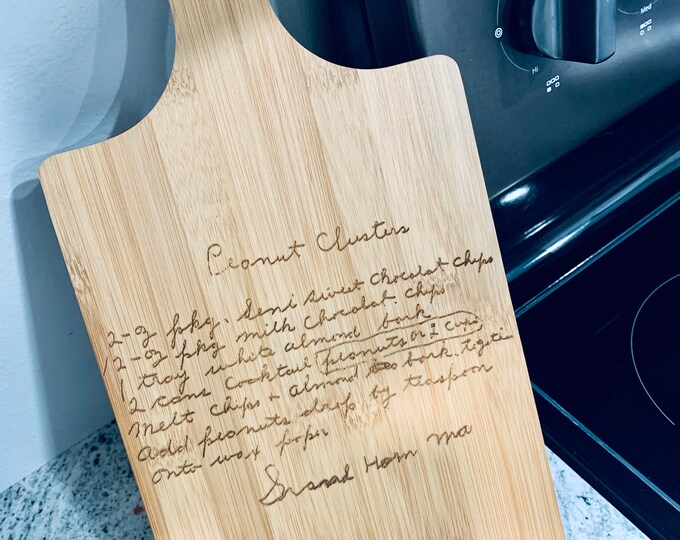 Hi
Peanut Clusters
2-oz pkg. Semi sweet chocolat chips
12-oz pkg milk chocolat. chips
1 tray white almond bark
2 cans cocktail peanuts or 2 cups
melt chips + almond bark together
add peanuts drop by teaspoon
onto wax paper
ma